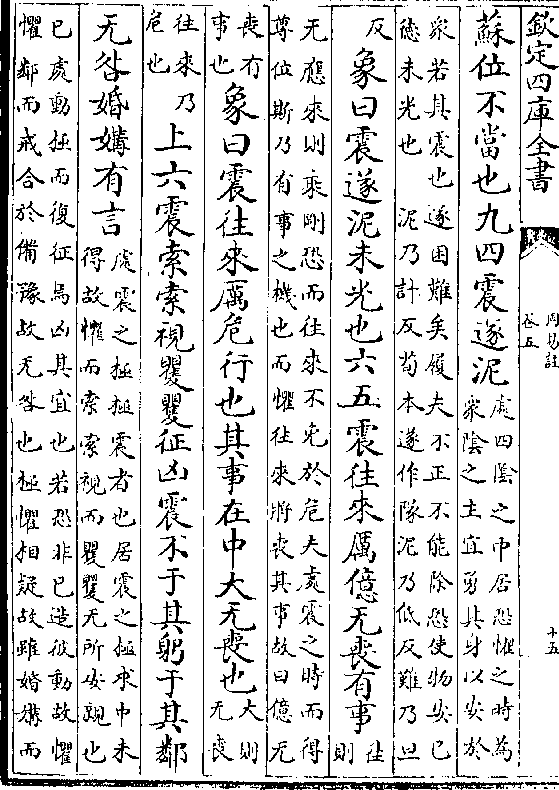 欽定四庫全書
周易註
卷五
十五
蘇位不當也九四震遂泥
處四隂之中居恐懼之時為
衆隂之主宜勇其身以安於
衆若其震也遂困難矣履夫不正不能除恐使物安已
徳未光也 泥乃計反荀本遂作隊泥乃低反難乃旦
反
象曰震遂泥未光也六五震往來厲億无喪有事
往
則
无應來則乘剛恐而往來不免於危夫處震之時而得
尊位斯乃有事之機也而懼往來將喪其事故曰億无
喪有
事也
象曰震往來厲危行也其事在中大无喪也
大則
无喪
往來乃
危也
上六震索索視矍矍征凶震不于其躬于其鄰
无咎婚媾有言
處震之極極震者也居震之極求中未
得故懼而索索視而矍矍无所安親也
已處動極而復征焉凶其宜也若恐非已造彼動故懼
懼鄰而戒合於備豫故无咎也極懼相疑故雖婚媾而